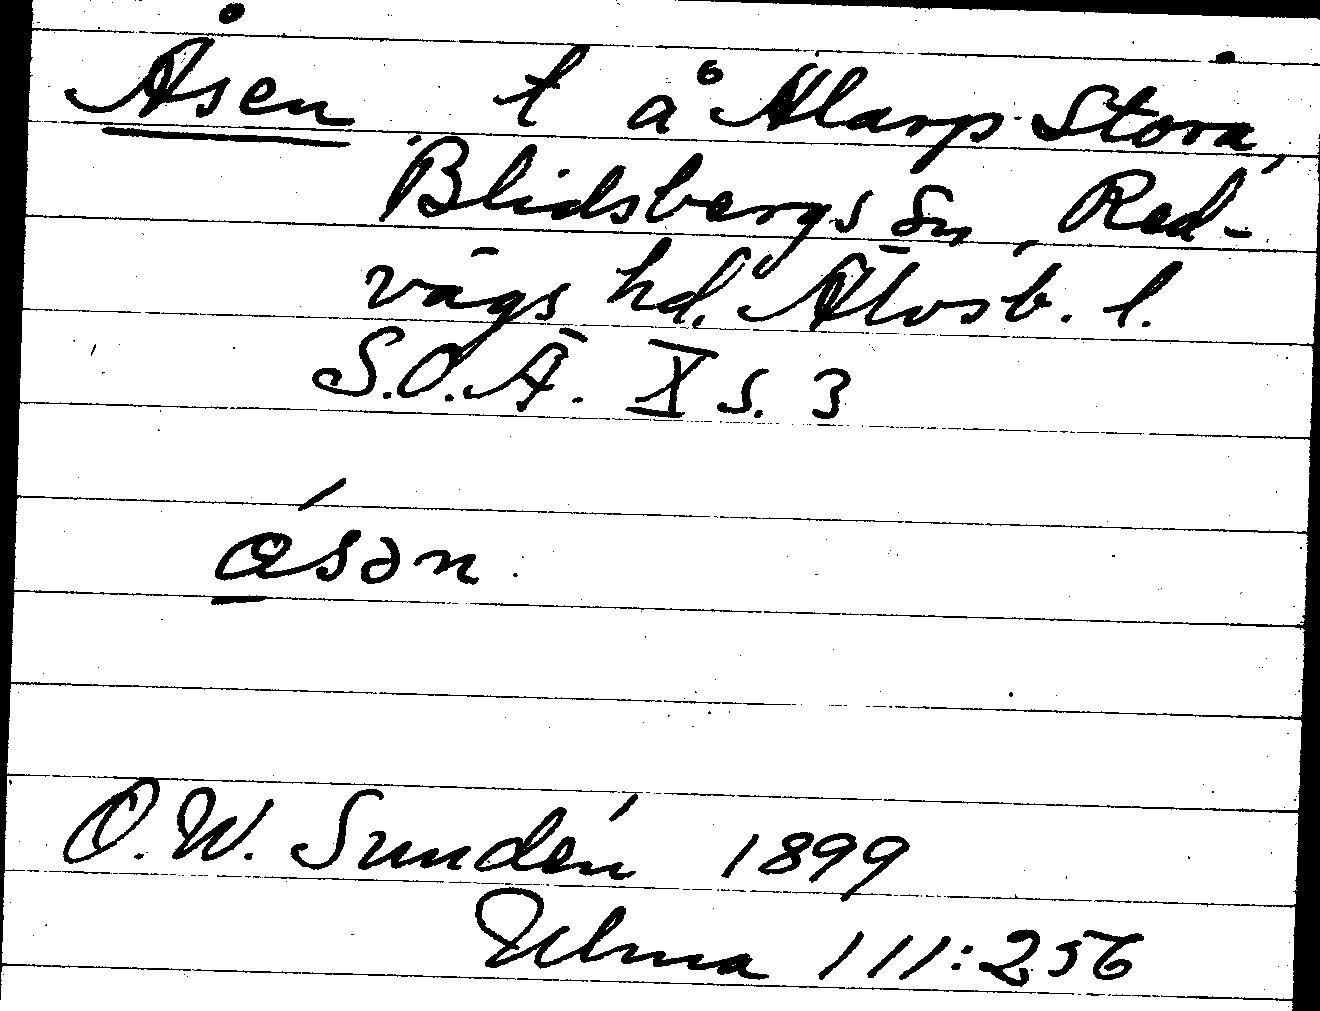 Åsen t å Alarp Stora,
Blidsbergs sn, Red-
vägs hd. Älvsb. l.
S.O.Ä. X s. 3
ásən
O.W. Sundén 1899
Ulma 111:256